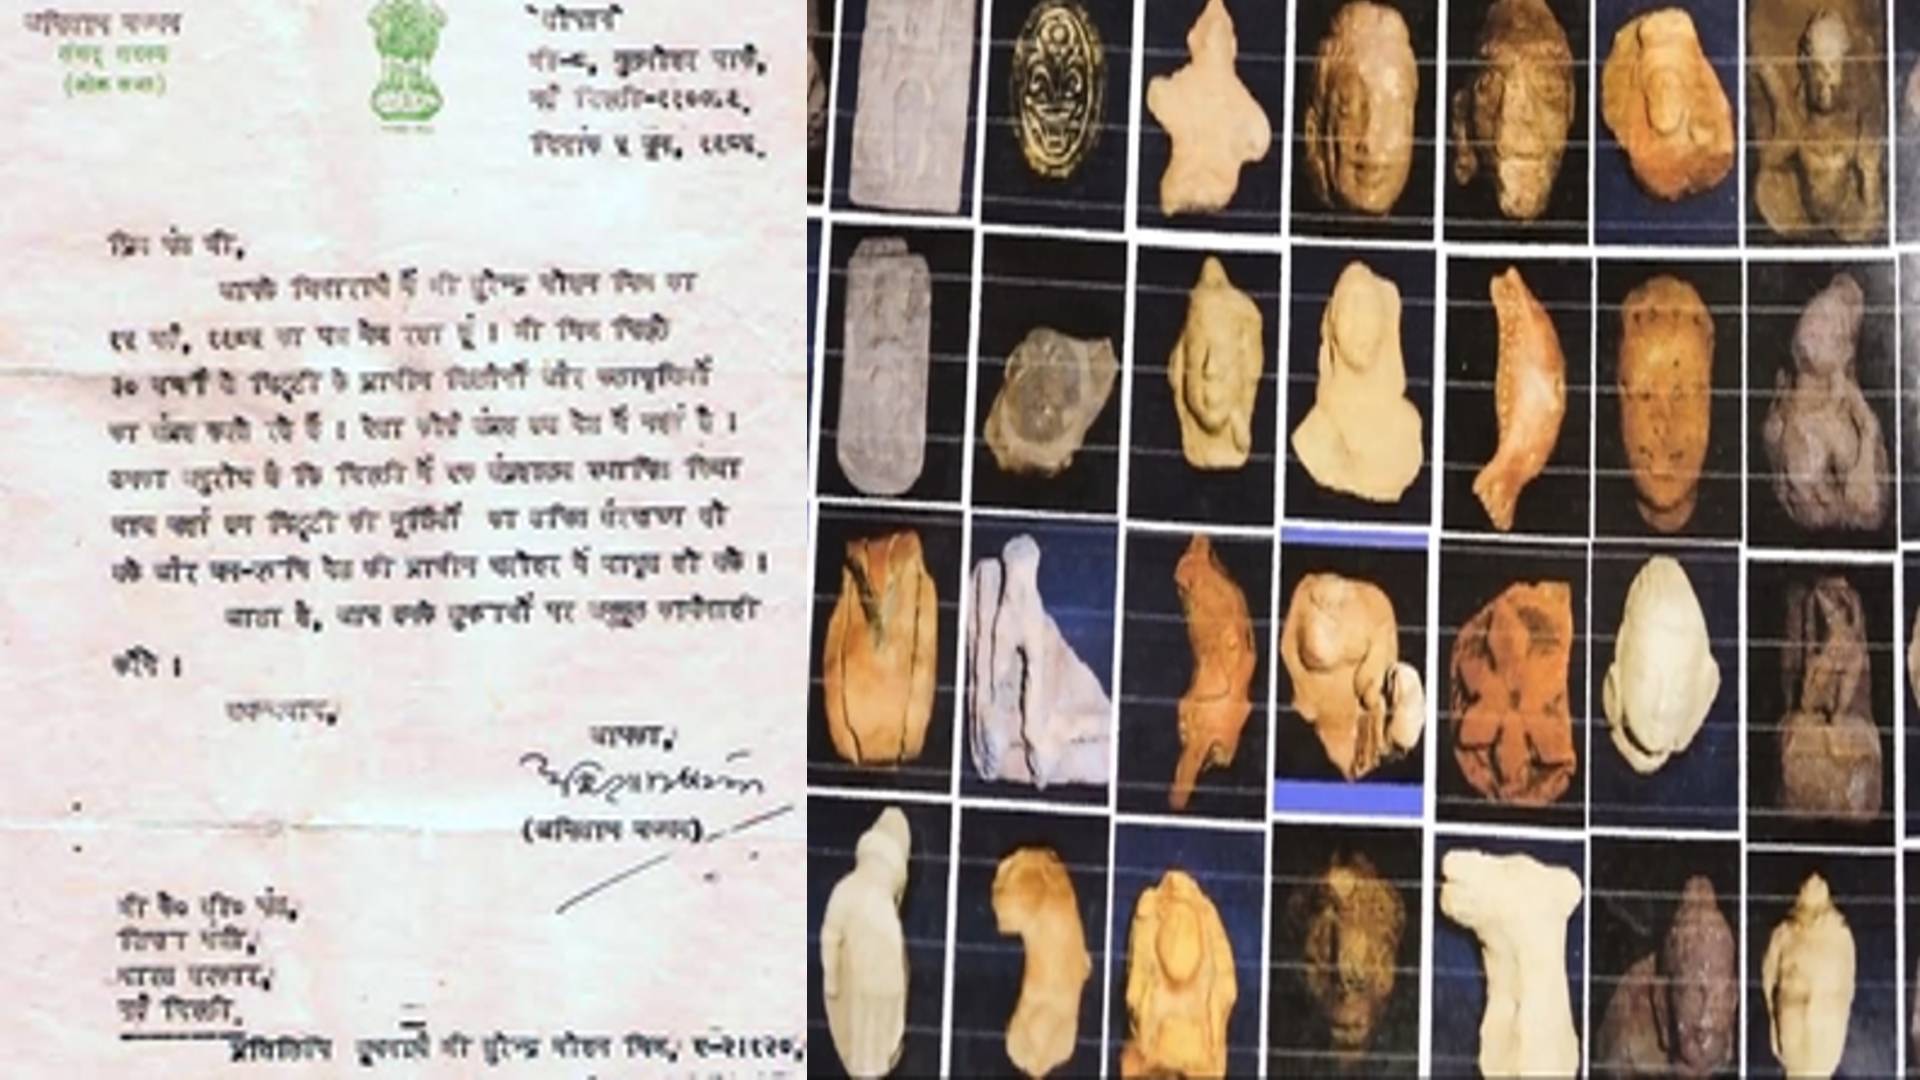 अमिताभ बच्चन
संसद् सदस्य
(लोक सभा)
"सोपान"
बी-८, गुलमोहर पार्क,
नई दिल्ली-११००४९.
दिनांक ५ जून, १९८५.
प्रिय पंत जी,
आपके विचारार्थ मैं श्री सुरेन्द्र मोहन मिश्र का
मई, १९८५ का पत्र भेज रहा हूं । श्री मिश्र पिछले
३० वर्षों से मिट्टी के प्राचीन खिलौनों और कलाकृतियों
का संग्रह करते रहे हैं । ऐसा कोई संग्रह इस देश में नहीं है ।
उनका अनुरोध है कि दिल्ली में एक संग्रहालय स्थापित किया
जाय जहां इन मिट्टी की मूर्तियों का उचित संरक्षण हो
सके और देश की प्राचीन धरोहर में हो सके ।
आशा है, आप उनके सुझावों पर कार्यवाही
करेंगे ।
धन्यवाद,
आपका,
(अमिताभ बच्चन)
श्री के० सी० पंत,
शिक्षा मंत्री,
भारत सरकार,
नई दिल्ली.
प्रतिलिपि श्री सुरेन्द्र मोहन मिश्र,